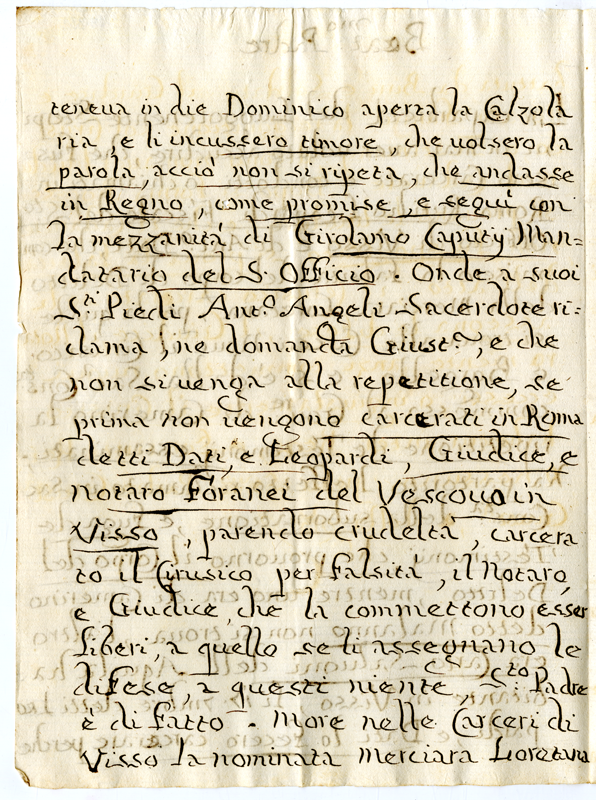 teneua in die Dominico aperta la Calzola
ria, e li incussero timore, che uolsero la
parola, acciò non si ripeta, che andasse
in Regno, come promise, e seguì con
la mezzanità di Girolamo Caputij Man=
datario del S. Officio. Onde a suoi
S.ti Piedi Ant.o Angeli Sacerdote ri=
clama, ne domanda Giust.a, e che
non si uenga alla repetitione, se
prima non uengono carcerati in Roma
detti Dati, e Leopardi, Giudice, e
notaro Foranei del Vescouo in
Visso, parendo crudeltà, carcera
to il Cirusico per falsità, il Notaro,
e Giudice, che la commettono esser
liberi, a quello se li assegnano le
difese, a questi niente, S.to Padre
è di fatto. More nelle Carceri di
Visso la nominata merciara Loretana